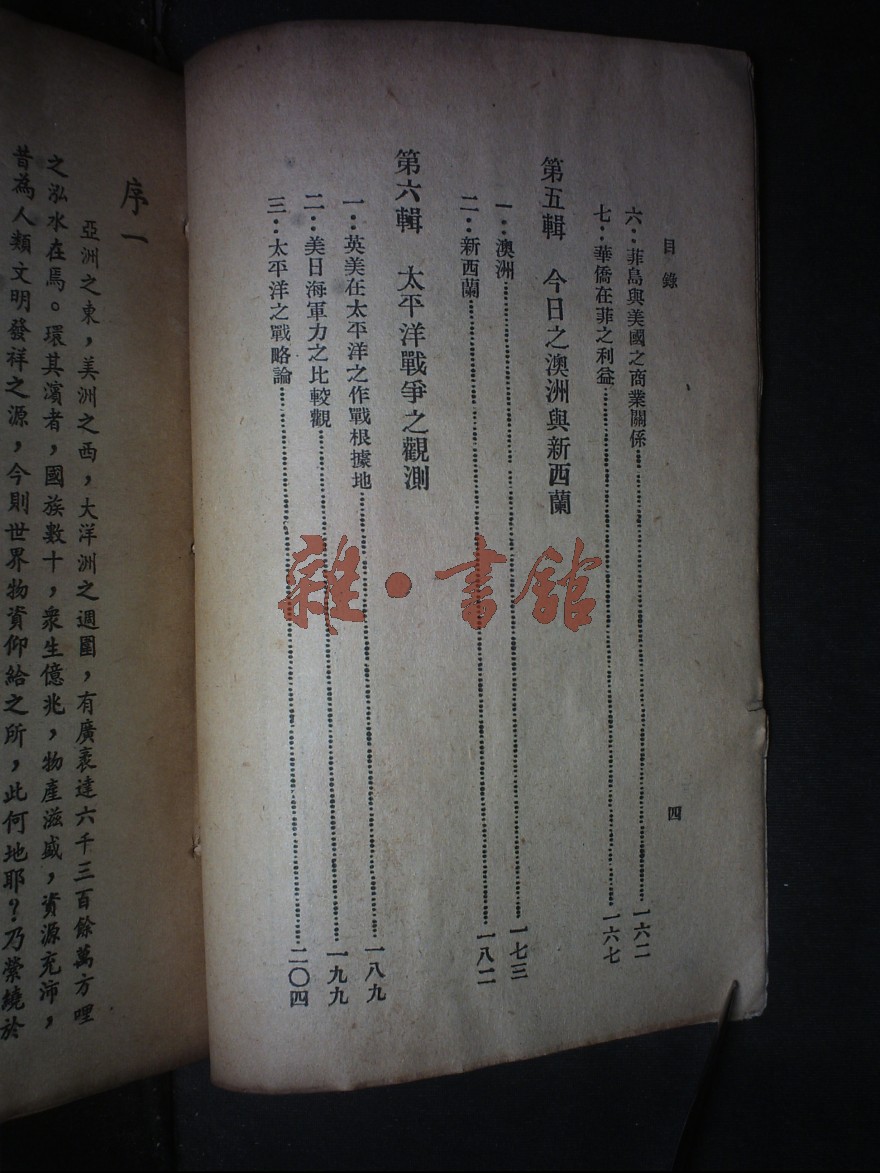 目錄
四
六：菲島與美國之商業關係……一六二
七：華僑在菲之利益……一六七
第五輯　今日之澳洲與新西蘭
一：澳洲……一七三
二：新西蘭……一八二
第六輯　太平洋戰爭之觀測
一：英美在太平洋之作戰根據地……一八九
二：美日海軍力之比較觀……一九九
三：太平洋之戰略論……二〇四
序一
亞洲之東，美洲之西，大洋洲之週圍，有廣袤達六千三百餘萬方哩
之泓水在焉。環其濱者，國族數十，衆生億兆，物產滋盛，資源充沛，
昔為人類文明發祥之源，今則世界物資仰給之所，此何地耶？乃縈繞於
雜·書舘